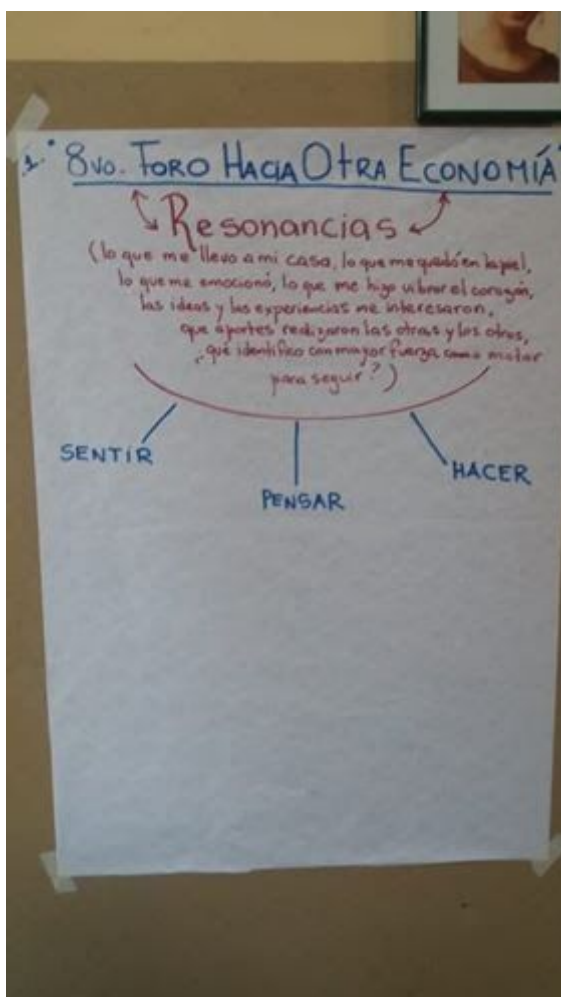 1. "8vo. Foro Hacia Otra Economía"
Resonancias
(lo que me llevo a mi casa, lo que me quedó en la piel,
lo que me emocionó, lo que me hizo vibrar el corazón,
las ideas y las experiencias me interesaron,
que aportes realizaron las otras y los otros,
¿qué identifico con mayor fuerza como motor
para seguir?)
SENTIR
PENSAR
HACER